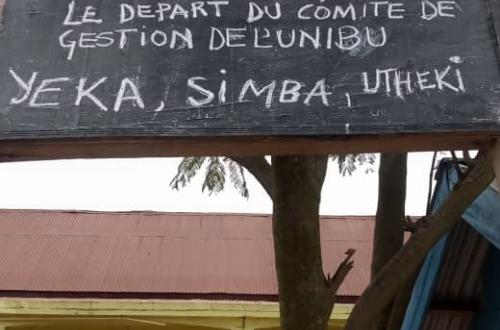 LE DEPART DU COMITE DE
GESTION DE L'UNIBU
YEKA, SIMBA, UTHEKI